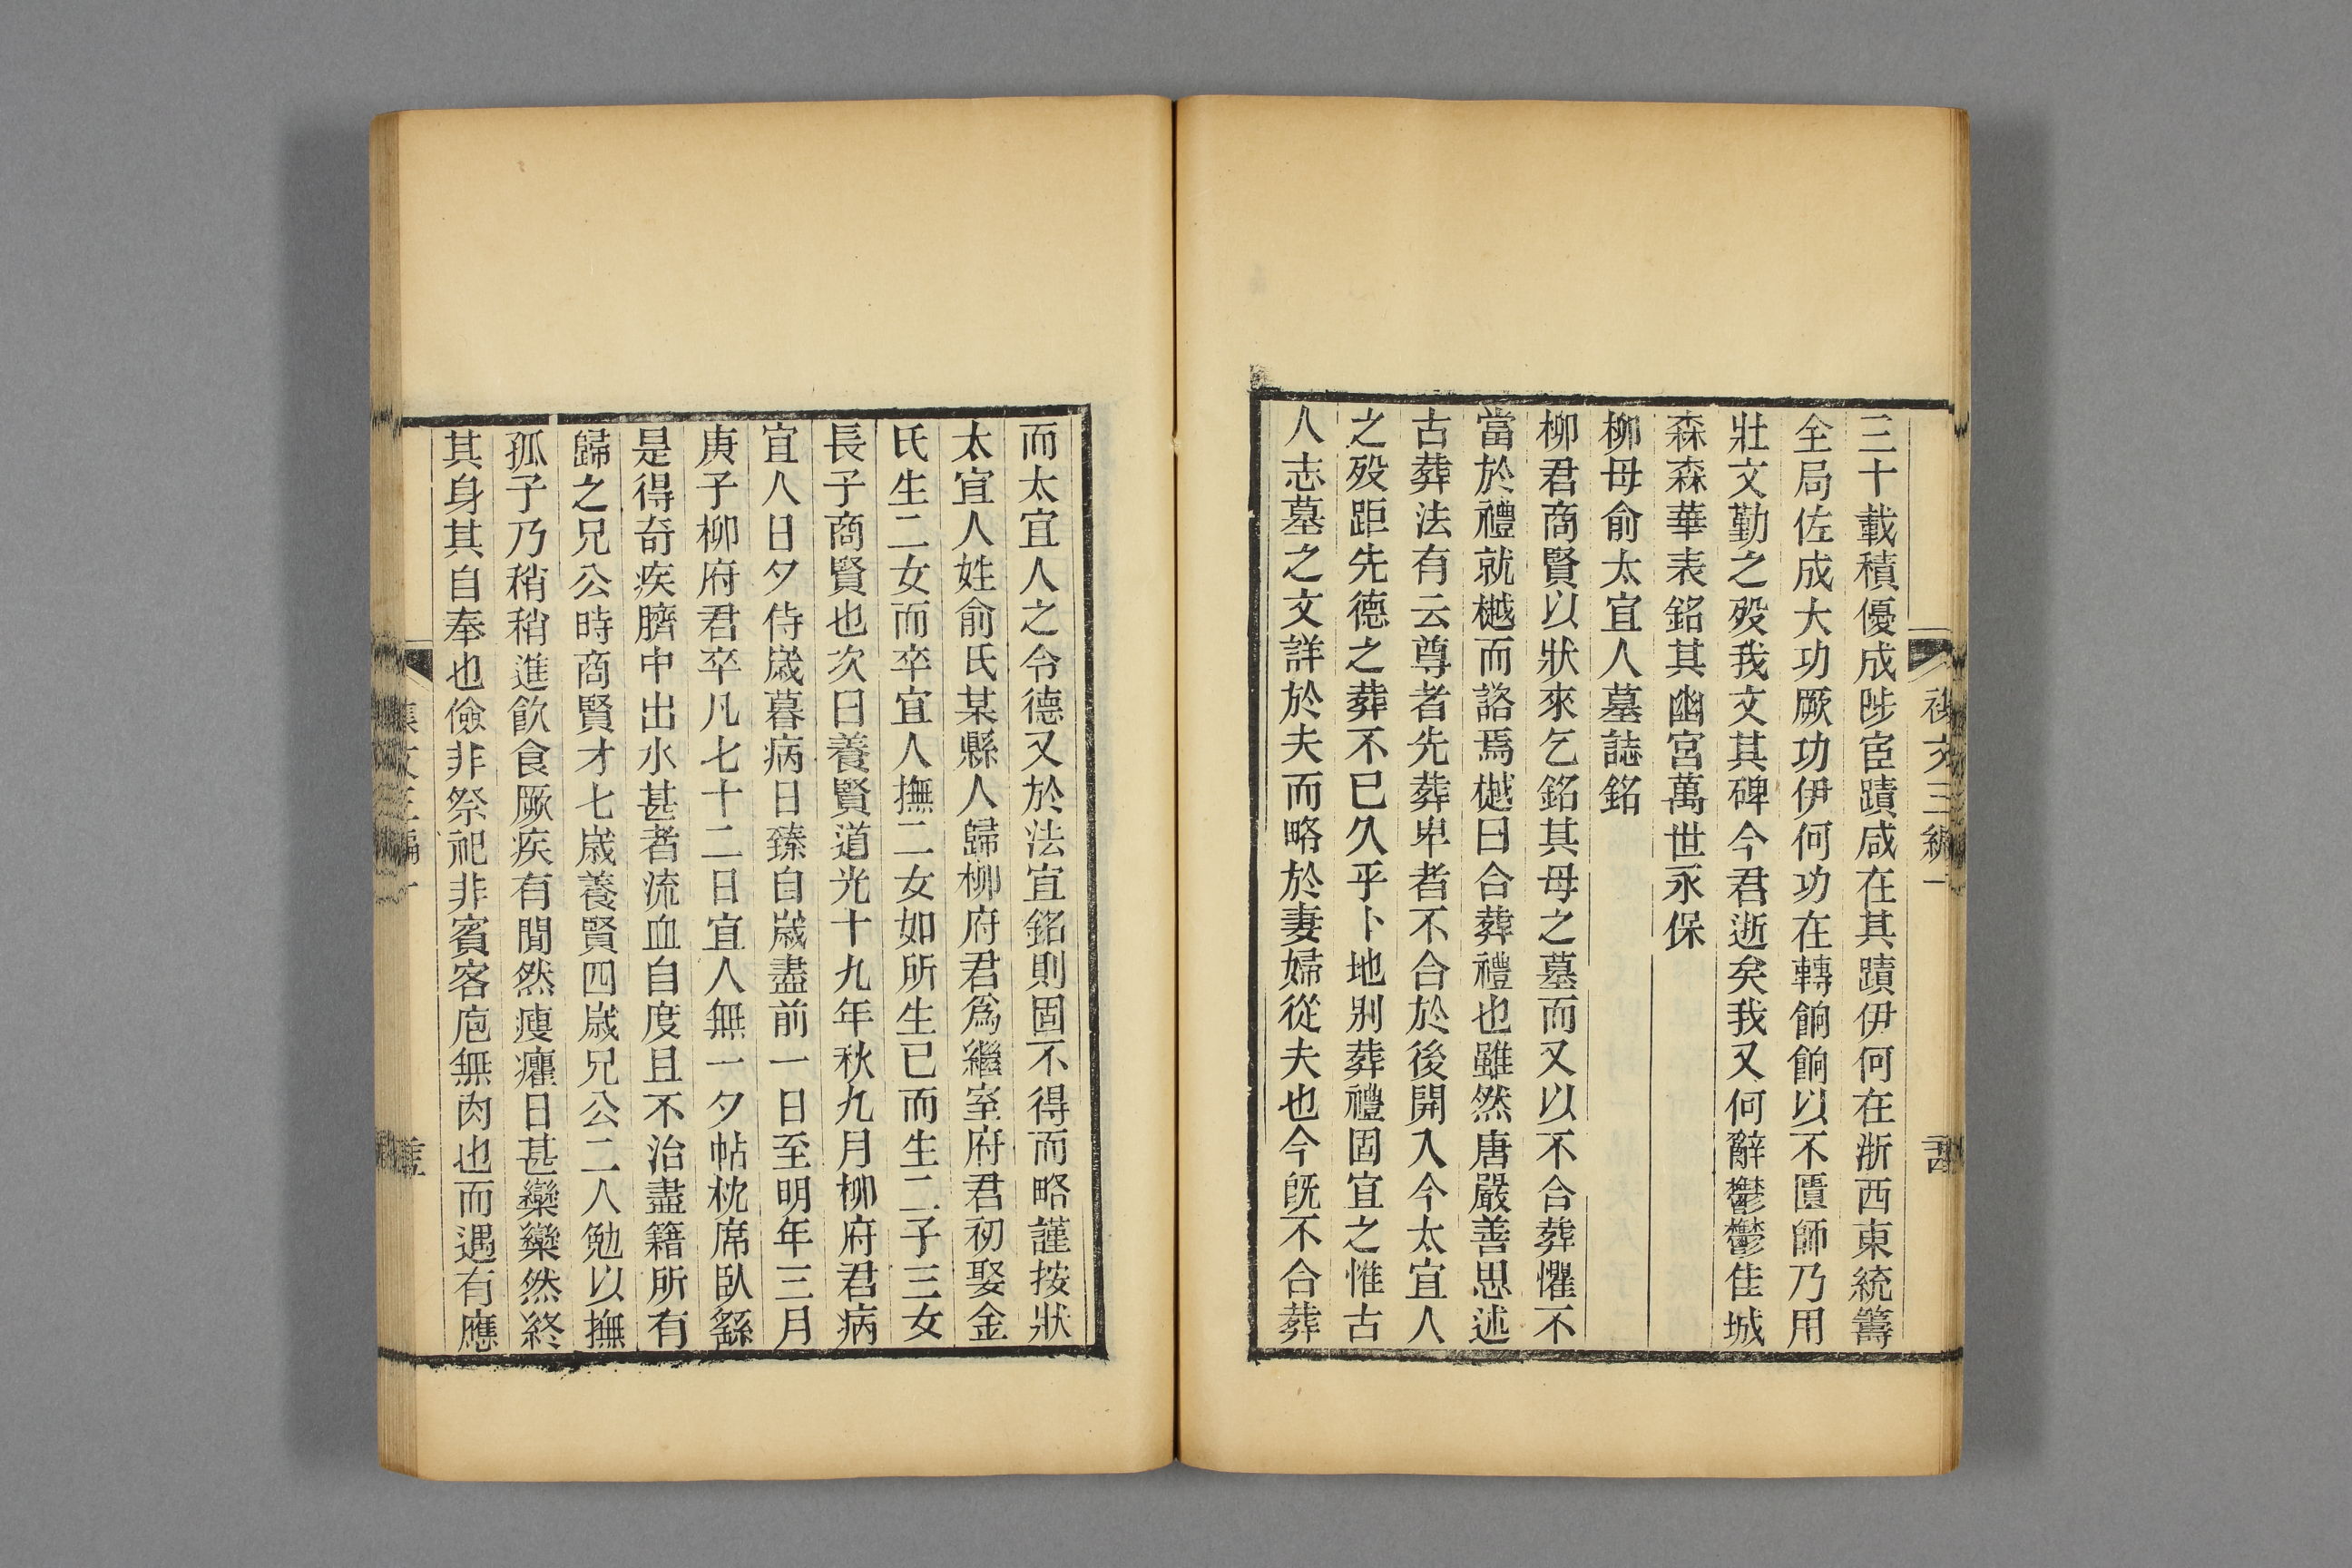 三十載積優成陟宦蹟咸在其蹟伊何在浙西東統籌
全局佐成大功厥功伊何功在轉餉餉以不匱師乃用
壯文勤之歿我文其碑今君逝矣我又何辭鬱鬱佳城
森森華表銘其幽宮萬世永保
柳母俞太宜人墓誌銘
柳君商賢以狀來乞銘其母之墓而又以不合葬懼不
當於禮就樾而諮焉樾曰合葬禮也雖然唐嚴善思述
古葬法有云尊者先葬卑者不合於後開入今太宜人
之歿距先德之葬不已久乎卜地別葬禮固宜之惟古
人志墓之文詳於夫而略於妻婦從夫也今旣不合葬
而太宜人之令德又於法宜銘則固不得而略謹按狀
太宜人姓俞氏某縣人歸柳府君爲繼室府君初娶金
氏生二女而卒宜人撫二女如所生已而生二子三女
長子商賢也次曰養賢道光十九年秋九月柳府君病
宜人日夕侍歲暮病日臻自歲盡前一日至明年三月
庚子柳府君卒凡七十二日宜人無一夕帖枕席臥繇
是得奇疾臍中出水甚者流血自度且不治盡籍所有
歸之兄公時商賢才七歲養賢四歲兄公二人勉以撫
孤子乃稍稍進飲食厥疾有閒然瘦癯日甚欒欒然終
其身其自奉也儉非祭祀非賓客庖無肉也而遇有應